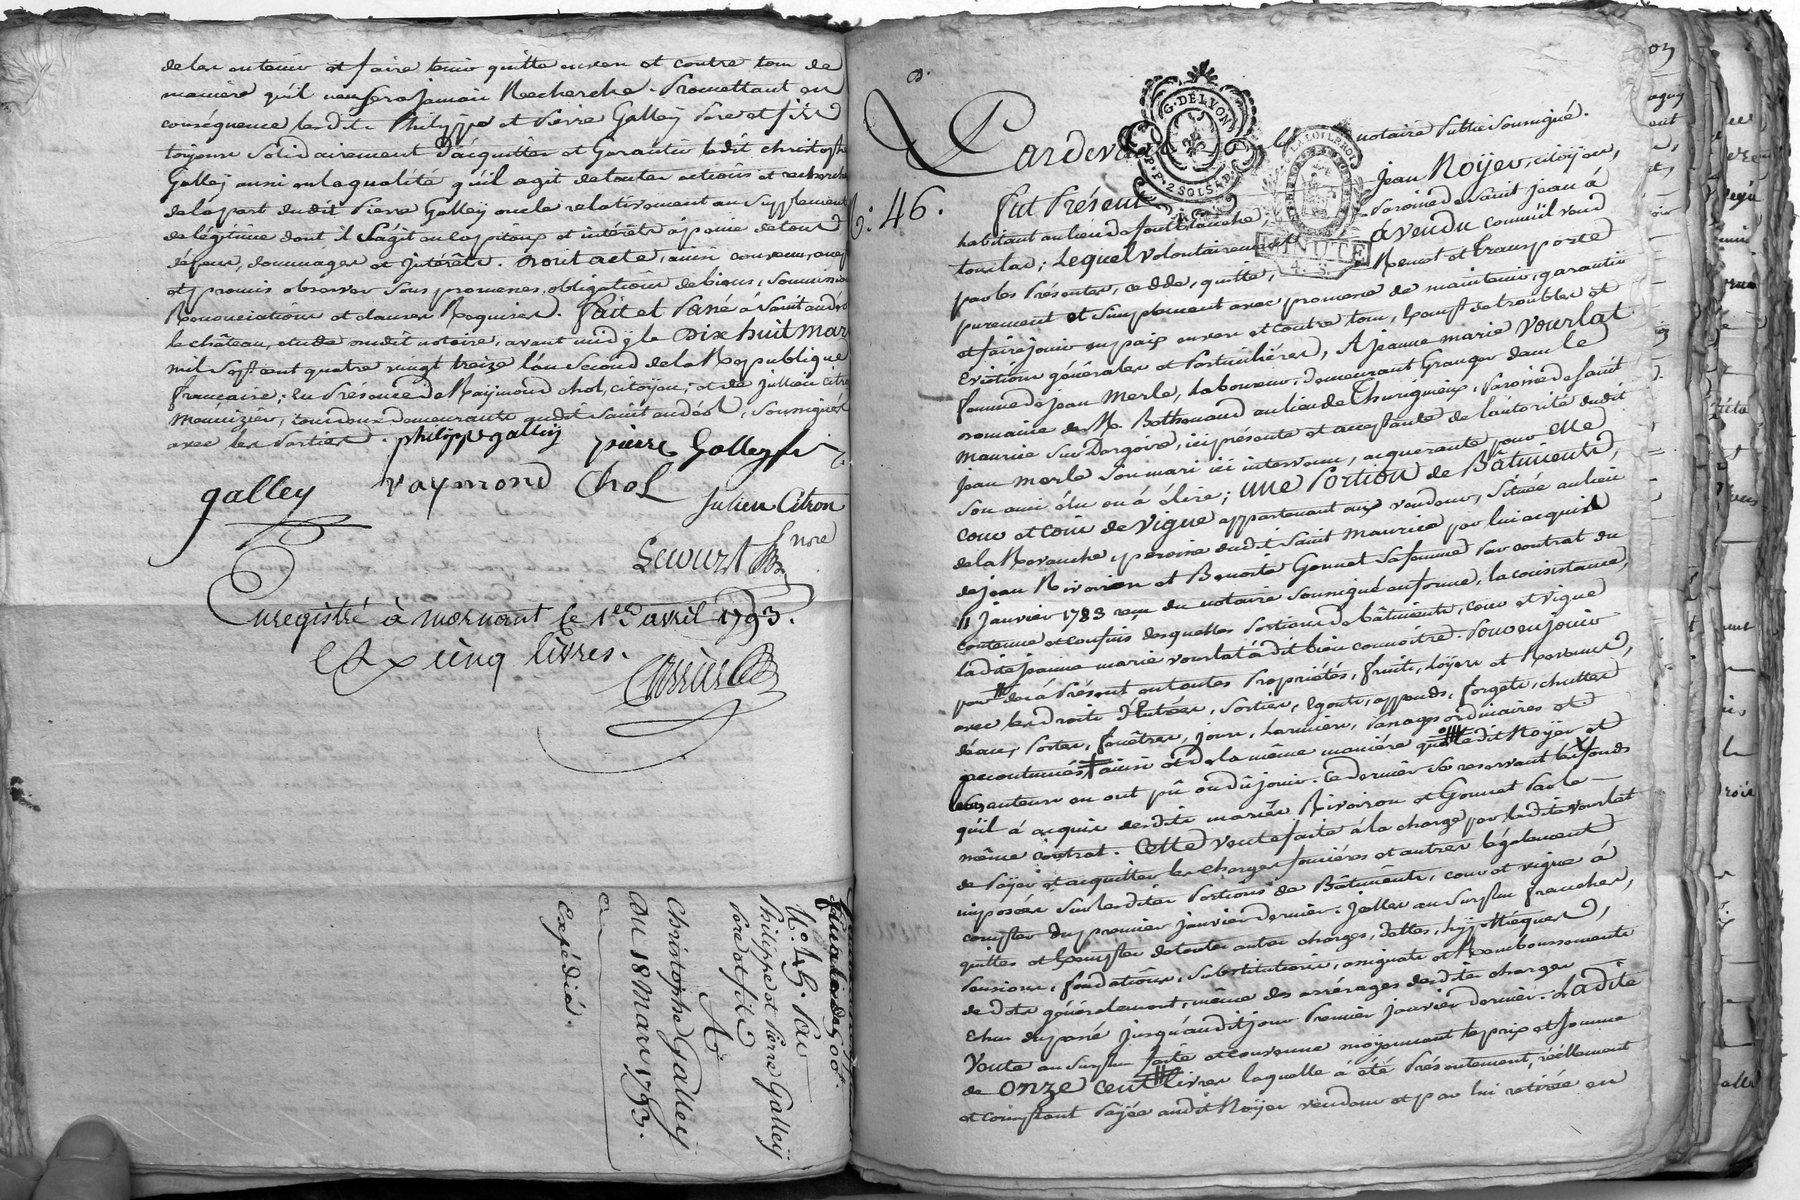 de les en tenir et faire tenir quitte envers et contre tous de
manière qu'il n'en sera jamais Recherché. Promettant en
conséquence lesdits Philippe et Pierre Galley Pere et fils
toujours Solidairement d'acquitter et Garantir ledit christophe
Galley aussi en la qualité qu'il agit de toutes actions et recherches
de la part dudit Pierre Galley oncle relativement au Supplement
de légitime dont il S'agit en capitaux et intérêts à peine de tous
dépens, dommages et intérêts. Dont acte, ainsi convenu, accepté
et promis observer Sous promesses, obligations de biens, Soumissions
Renonciations et clauses Requises. Fait et Passé à Saint andéol
le château, etude dudit notaire, avant midy le Dix huit mars
mil Sept cent quatre vingt treize l'an Second de la Republique
française; En Présence de Raymond Chol, citoyen, et de Julien Citron
demeurants audit Saint andéol, Soussignés
avec les Parties. philippe galley pierre Galley fils
galley raymond Chol Julien Citron
Lecourt nore
Enregistré à mornant le 1er avril 1793.
cinq livres.
N°. 45. Par
Philippe et Pierre Galley
Pere et fils
A
Christophe Galley
Du 18 Mars 1793.
Expédié.
G. DE LYON
2 SOLS 4 D.
LA LOI LE ROI
MINUTE
4. S.
Pardevant le notaire Public soussigné.
N°: 46. Fut Présent Jean Noyer, citoyen,
habitant au lieu de Parroisse de Saint Jean à
touslas; Lequel volontairement a vendu comme il vend
par les Présentes, cedde, quitte, Remet et transporte
purement et Simplement avec promesse de maintenir, garantir
et faire jouir en paix envers et contre tous, Exempt de troubles et
Evictions générales et Particulières, A Jeanne marie Vourlat
femme de Jean Merle, Laboureur, demeurant Granger dans le
domaine de Mr. Bothouard au lieu de Parroisse de Saint
Maurice Sur Dargoire, ici présente et acceptante de l'autorité dudit
Jean Merle Son mari ici intervenu, acquerante pour Elle
Son ami élu ou à élire; une Portion de Bâtiments,
Cour et Coin de Vigne appartenant aux vendeur, Située au lieu
de la Revanche, paroisse dudit Saint Maurice par lui acquis
de Jean Rivoiron et Benoite Gonnet Sa femme Par contrat du
11 Janvier 1783 reçu du notaire Soussigné en forme, la consistance,
contenue et confins desquelles Portions de bâtiments, cour et vigne
ladite Jeanne marie vourlat à dit bien connoitre. Pour en jouir
par dès à Présent en toutes Propriétés, fruits, loyers et Revenus,
avec les droits d'Entrées, Sorties, Egouts, appends, forgets, chuttes
d'eau, Portes, fenêtres, jours, Larmiers, Passages ordinaires et
accoutumés ainsi et de la même manière que ledit Noyer et
ses auteurs en ont pû ou dû jouir. Ce dernier Se reservant les fonds
qu'il à acquis desdits mariés Rivoiron et Gonnet Par le
même contrat. Cette vente faite à la charge par ladite vourlat
de Payer et acquitter les charges foncières et autres légalement
imposées Sur lesdites Portions de Bâtiments, cour et vigne à
compter du premier janvier dernier. Jcelles au Surplus franches,
quittes et Exemptes de toutes autres charges, dettes, hypothéques,
Pensions, fondations, Substitutions, assignats et Remboursements
de dots généralement, même des arrérages desdites charges
chus du passé jusqu'audit jour Premier janvier dernier. Ladite
Vente au Surplus faite et convenue moyennant le prix et Somme
de Onze Cent livres laquelle à été Présentement, réellement
et comptant Payée audit Noyer vendeur et par lui retirée en